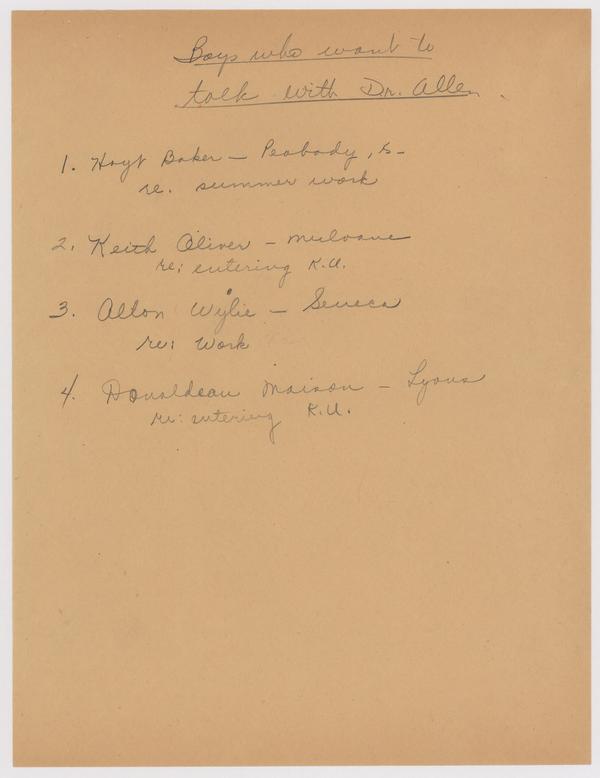 Boys who want to
talk with Dr. Allen.
1. Hoyt Baker – Peabody, Ks–
re. summer work
2. Keith Oliver – Mulvane
re: entering K.U.
3. Alton Wylie – Seneca
re: Work
4. Donaldean Maison – Lyons
re: entering K.U.